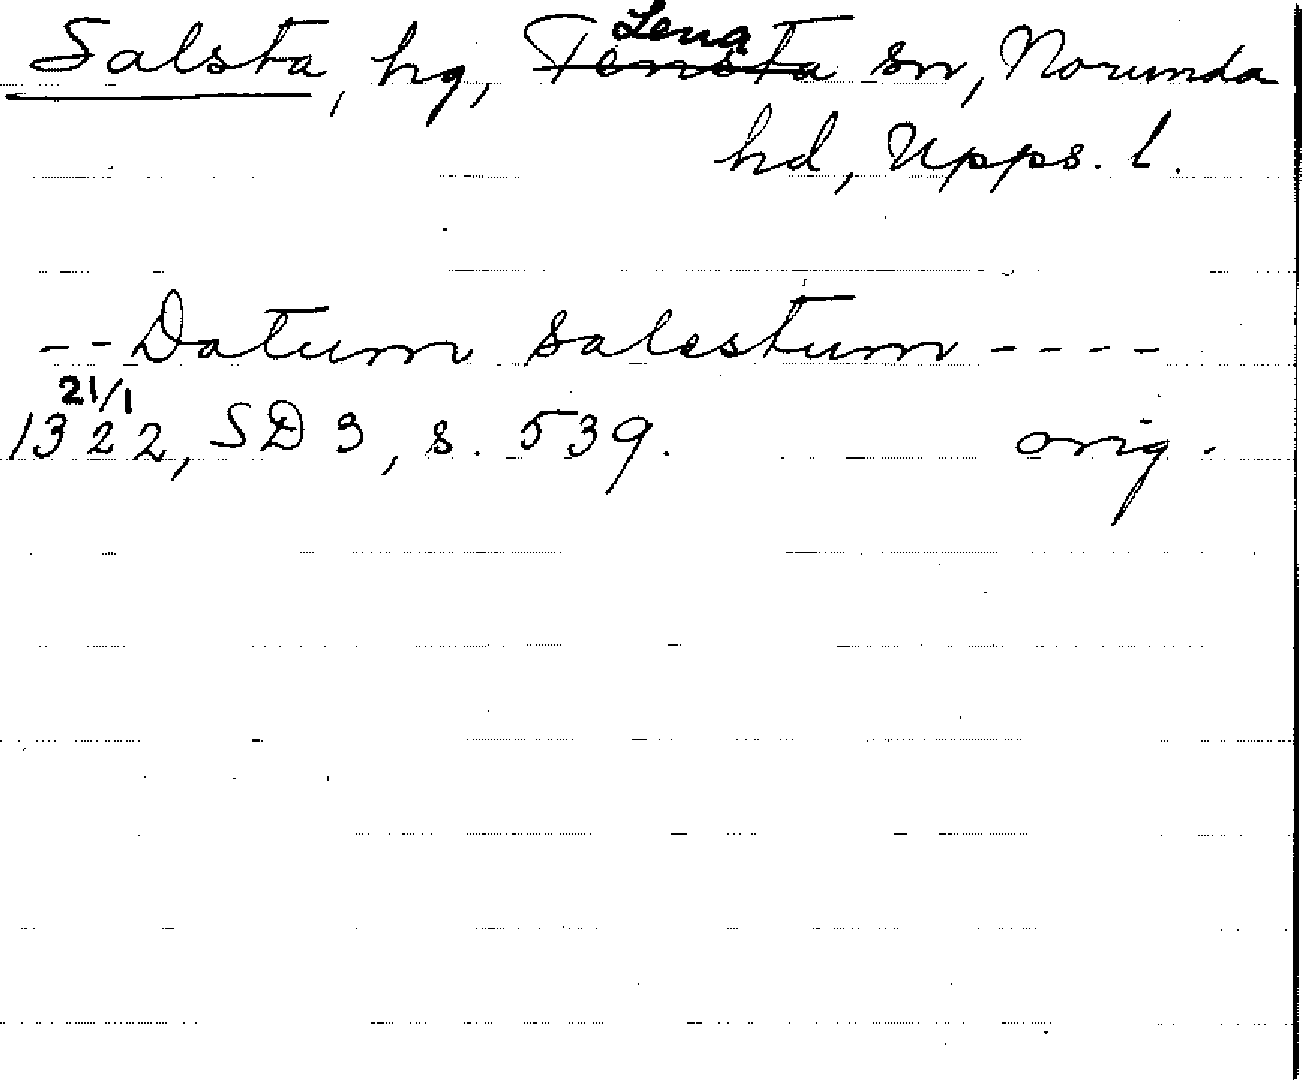 Lena
Salsta, hg, Tensta sn, Norunda
hd, Upps. l.
-- Datum salestum ----
21/1
1322, SD 3, s. 539. orig.